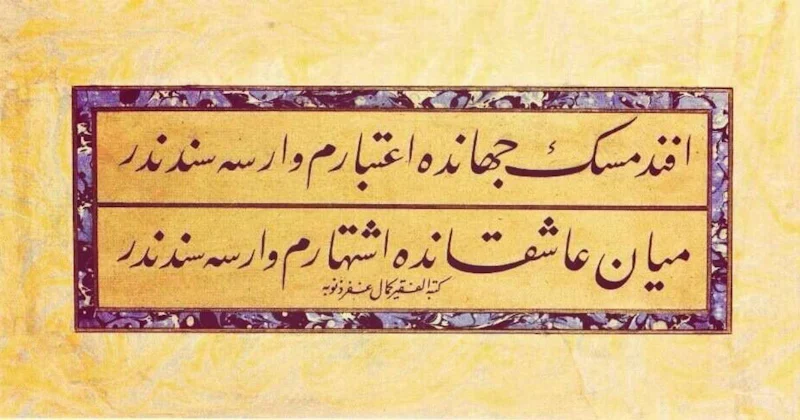 افندمسك جهانده اعتبارم وارسه سندندر
میان عاشقانده اشتهارم وارسه سندندر
كتبه الفقير كمال غفر ذنوبه